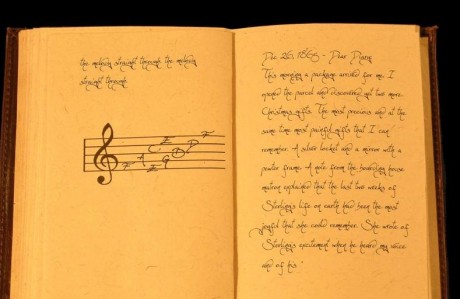 the melody straight through, the melody
straight through
F A C E
E G B D F
Dec 26, 1865 - Dear Diary
This morning a package arrived for me. I
opened the parcel and discovered yet two more
Christmas gifts. The most precious and at the
same time most painful gifts that I can
remember. A silver locket and a mirror with a
pewter frame. A note from the boarding house
matron explained that the last two weeks of
Sterling's life on earth had been the most
joyful that she could remember. She wrote of
Sterling's excitement when he heard my voice
and of his